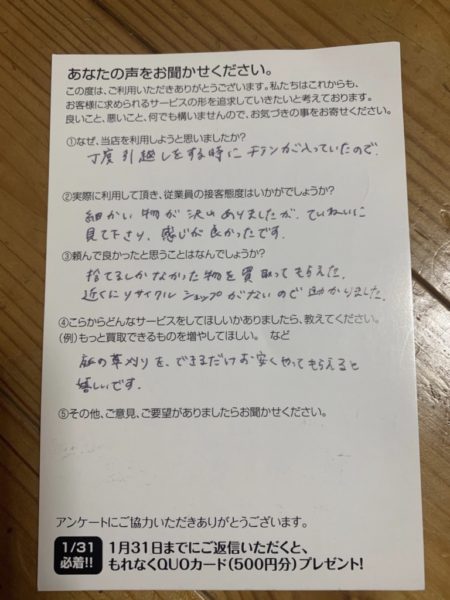 あなたの声をお聞かせください。
この度は、ご利用いただきありがとうございます。私たちはこれからも、
お客様に求められるサービスの形を追求していきたいと考えております。
良いこと、悪いこと、何でも構いませんので、お気づきの事をお寄せください。
①なぜ、当店を利用しようと思いましたか?
丁度引越しをする時にチラシが入っていたので。
②実際に利用して頂き、従業員の接客態度はいかがでしょうか?
細かい物が沢山ありましたが、ていねいに
見て下さり、感じが良かったです。
③頼んで良かったと思うことはなんでしょうか?
捨てるしかなかった物を買取ってもらえた。
近くにリサイクルショップがないので助かりました。
④こらからどんなサービスをしてほしいかありましたら、教えてください。
(例)もっと買取できるものを増やしてほしい。 など
庭の草刈りを、できるだけお安くやってもらえると
嬉しいです。
⑤その他、ご意見、ご要望がありましたらお聞かせください。
アンケートにご協力いただきありがとうございます。
1/31
必着!!
1月31日までにご返信いただくと、
もれなくQUOカード(500円分)プレゼント!